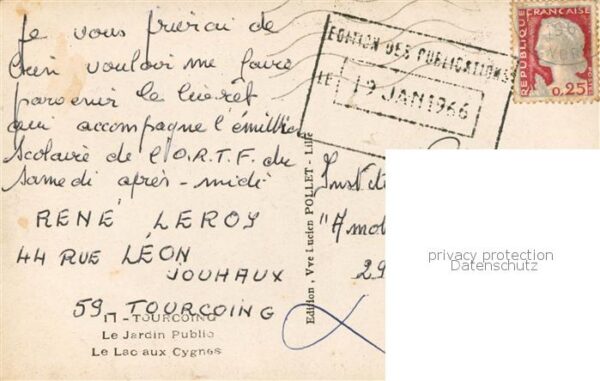 Je vous prierai de
bien vouloir me faire
parvenir le livret
qui accompagne l'émission
scolaire de l'O.R.T.F. du
samedi après-midi
RENÉ LEROY
44 RUE LÉON
JOUHAUX
59 TOURCOING
17 - TOURCOING
Le Jardin Public
Le Lac aux Cygnes
Edition, Vve Lucien POLLET - Lille
EDITION DES PUBLICATIONS
LE 19 JAN 1966
REPUBLIQUE
FRANÇAISE
0,25
POSTES
Instit
"Amo
29
privacy protection
Datenschutz